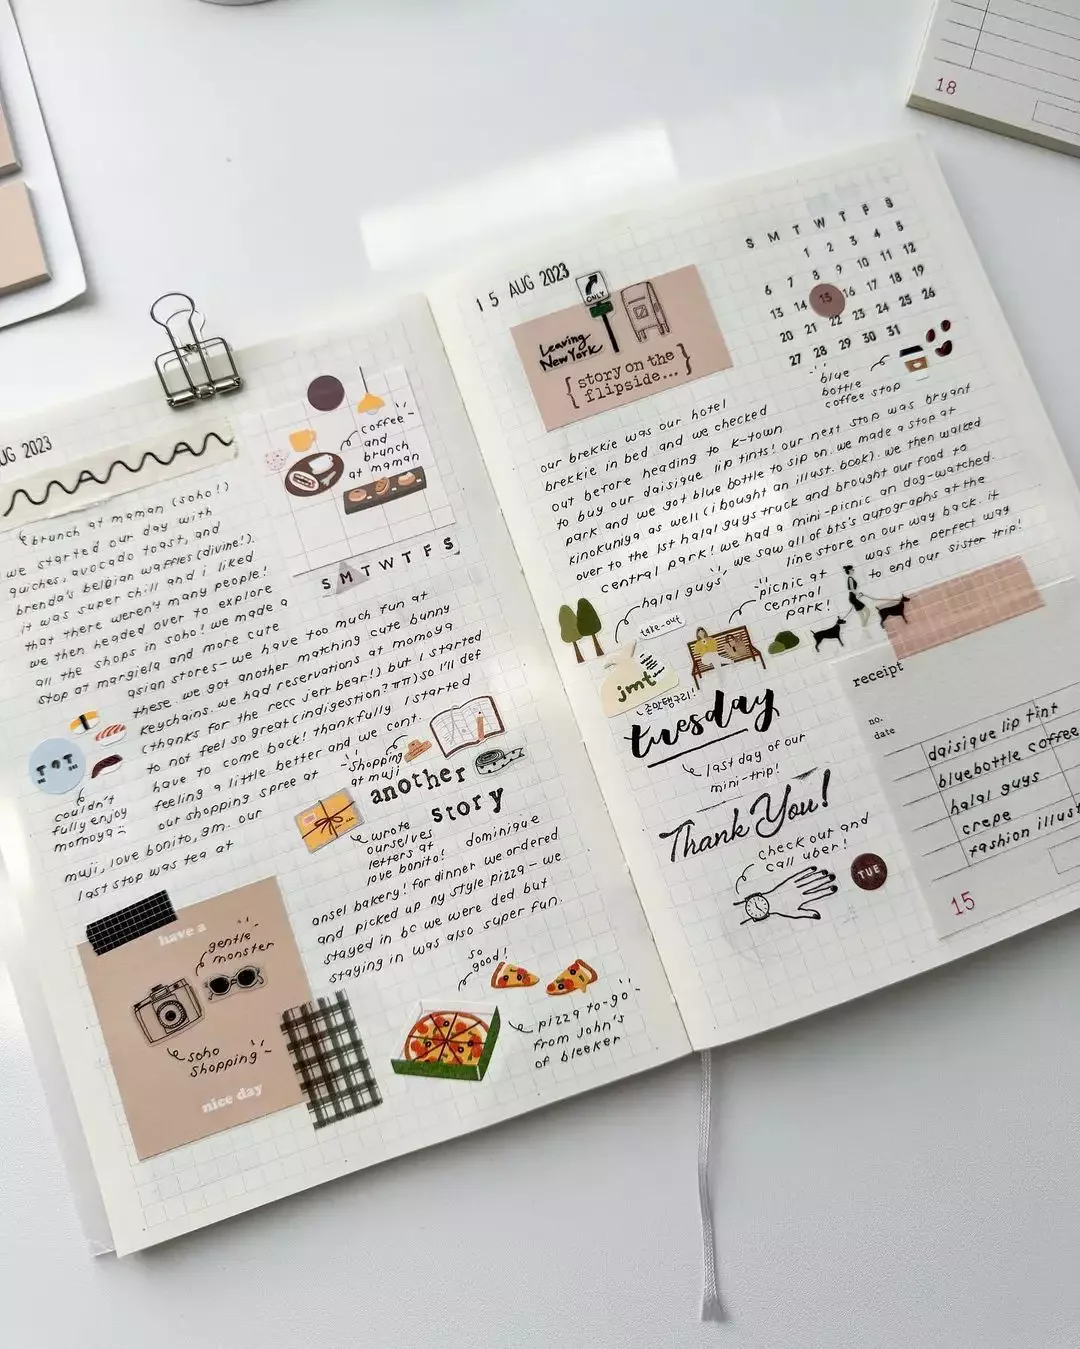 UG 2023
MAMAN
brunch at maman (soho!)
we started our day with
quiches, avocado toast, and
brenda's belgian waffles (divine!).
it was super chill and i liked
that there weren't many people!
we then headed over to explore
all the shops in soho! we made a
stop at margiela and more cute
asian stores- we have too much fun at
these. we got another matching cute bunny
keychains. we had reservations at momoya
(thanks for the recc jerr bear!) but i started
to not feel so great (indigestion? ㅠㅠ) so i'll def
have to come back! thankfully i started
feeling a little better and we cont.
our shopping spree at
muji, love bonito, gm. our
last stop was tea at
coffee
and
brunch
at maman
S M T W T F S
couldn't
fully enjoy
momoya
shopping
at muji
another
story
wrote
ourselves
letters at
love bonito!
dominique
ansel bakery! for dinner we ordered
and picked up ny style pizza - we
stayed in bc we were ded but
staying in was also super fun.
have a
gentle
monster
soho
shopping
nice day
so
good!
pizza to-go
from john's
of bleeker
15 AUG 2023
ONLY
Leaving
New York
{ story on the
flipside... }
S M T W T F S
1 2 3 4 5
6 7 8 9 10 11 12
13 14 15 16 17 18 19
20 21 22 23 24 25 26
27 28 29 30 31
blue
bottle
coffee stop
our brekkie was our hotel
brekkie in bed and we checked
out before heading to k-town
to buy our daisique lip tints! our next stop was bryant
park and we got blue bottle to sip on. we made a stop at
kinokuniya as well (i bought an illust. book). we then walked
over to the 1st halal guys truck and brought our food to
central park! we had a mini-picnic an dog-watched.
we saw all of bts's autographs at the
line store on our way back. it
was the perfect way
to end our sister trip!
halal guys
take-out
jmt
picnic at
central
park!
tuesday
last day of our
mini-trip!
Thank You!
check out and
call uber!
TUE
receipt
no.
date
daisique lip tint
bluebottle coffee
halal guys
crepe
fashion illust
15
18